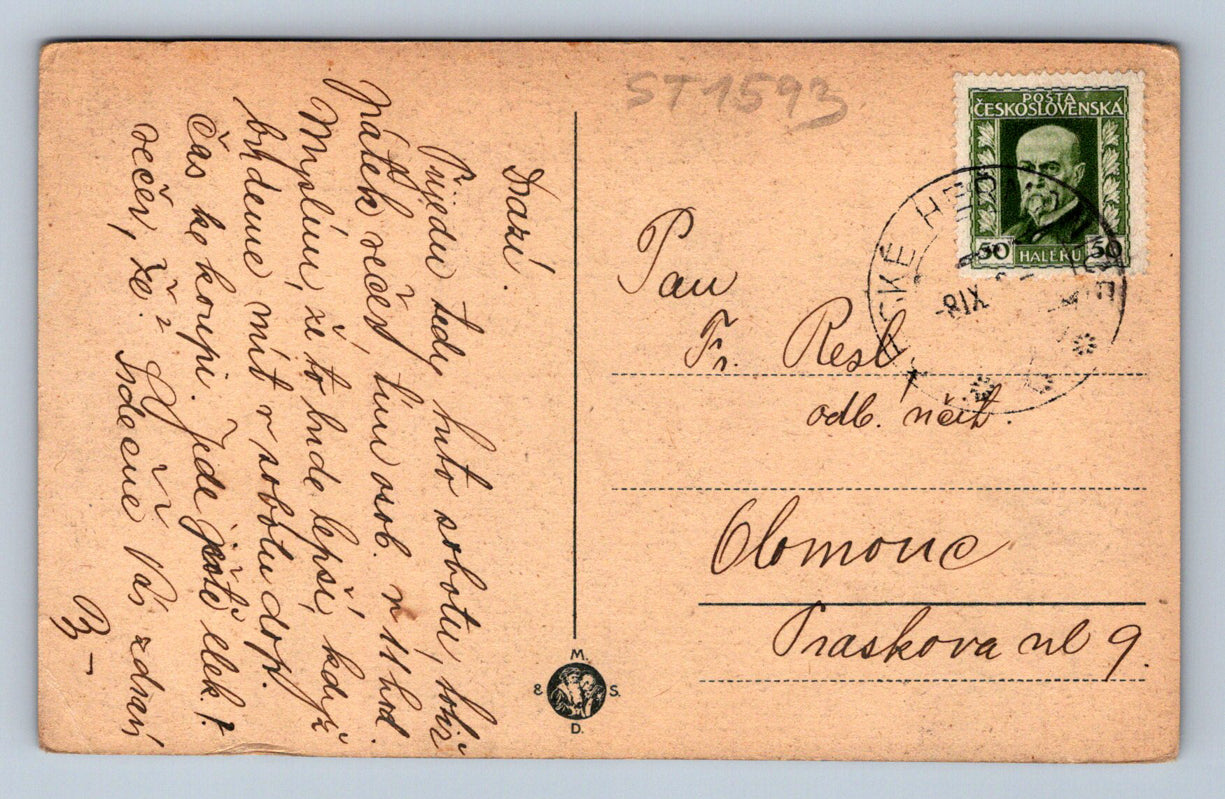 ST1593
POŠTA
ČESKOSLOVENSKÁ
50 HALÉŘŮ 50
SKÉ HR
-8 IX
Pan
Fr. Resl
odb. učit.
Olomouc
Praskova ul 9.
M.
& S.
D.
Drazí.
Přijedu tedy tuto sobotu, totiž
pátek večer, tím osob. v 11 hod.
Myslím, že to bude lepší, když
budeme mít v sobotu dop.
čas ke koupi. Jede ještě elek.?
večer, že?
Srdečně Vás zdraví